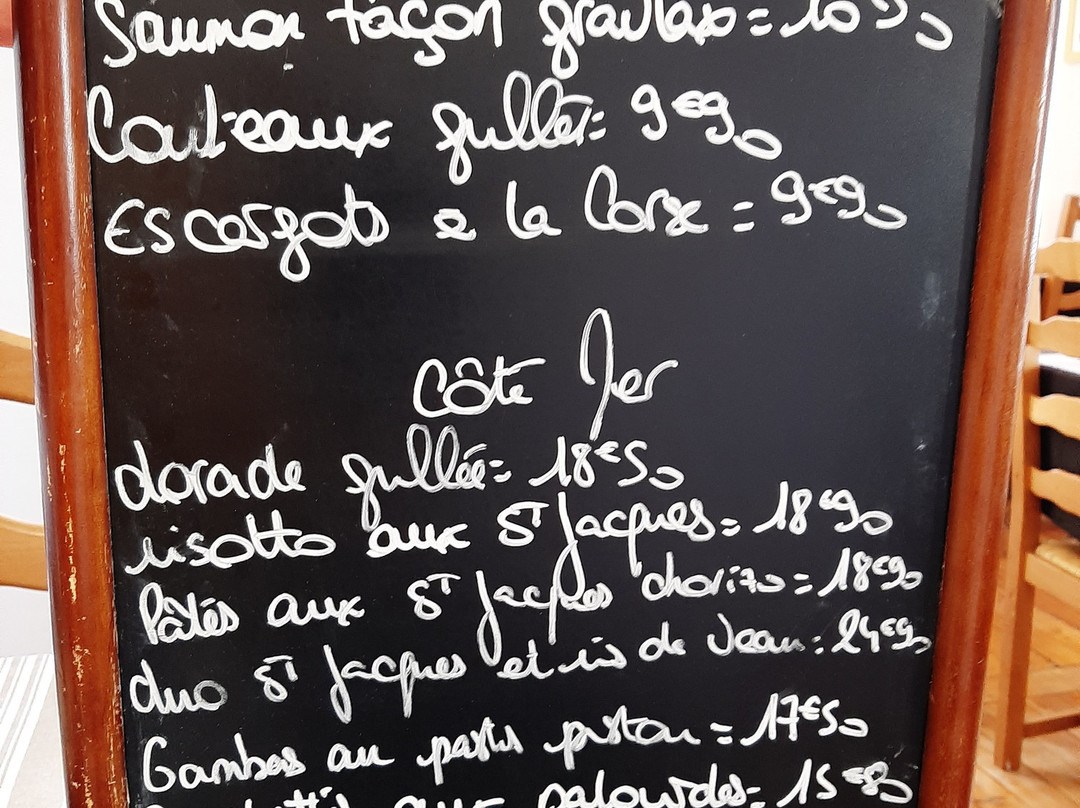 Saumon façon gravlax = 10
Couteaux grillé = 9€90
Escargots a la Corse = 9€90
Côté Mer
dorade grillée = 18€50
risotto aux St Jacques = 18€90
Pâtés aux St Jacques chorizo = 18€90
duo St Jacques et ris de Veau : 24€90
Gambas au pastis piston = 17€50
aux palourdes = 15€80